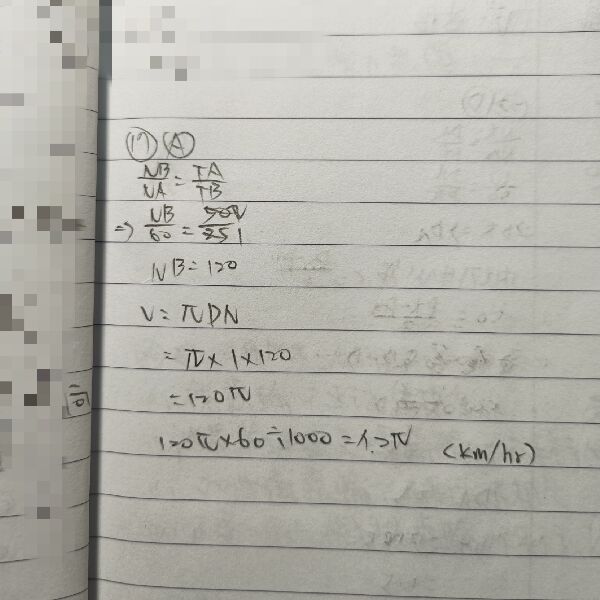 17 A
NB/NA = TA/TB
⇒ NB/60 = 50 2/25 1
NB=120
V = πDN
= π×1×120
=120π
120π×60÷1000 = 7.2π (km/hr)